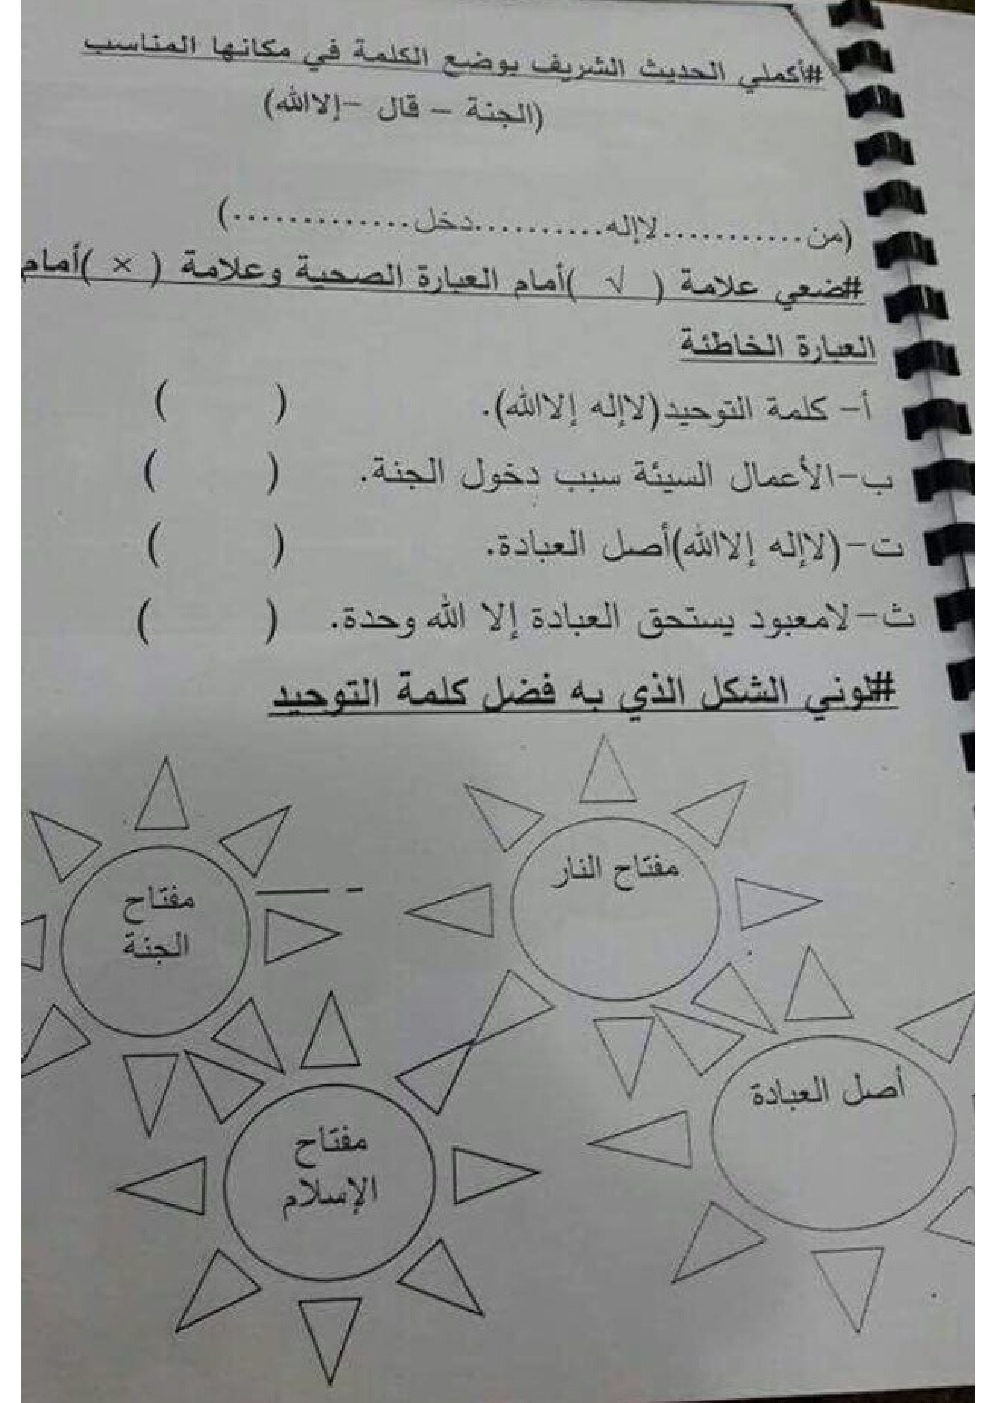 #أكملي الحديث الشريف بوضع الكلمة في مكانها المناسب
(الجنة – قال –إلاالله)
(من............لاإله..........دخل..............)
#ضعي علامة ( √ )أمام العبارة الصحية وعلامة ( × )أمام
العبارة الخاطئة
أ- كلمة التوحيد(لاإله إلاالله). ( )
ب-الأعمال السيئة سبب دخول الجنة. ( )
ت-(لاإله إلاالله)أصل العبادة. ( )
ث-لامعبود يستحق العبادة إلا الله وحدة. ( )
#لوني الشكل الذي به فضل كلمة التوحيد
مفتاح النار
مفتاح
الجنة
أصل العبادة
مفتاح
الإسلام